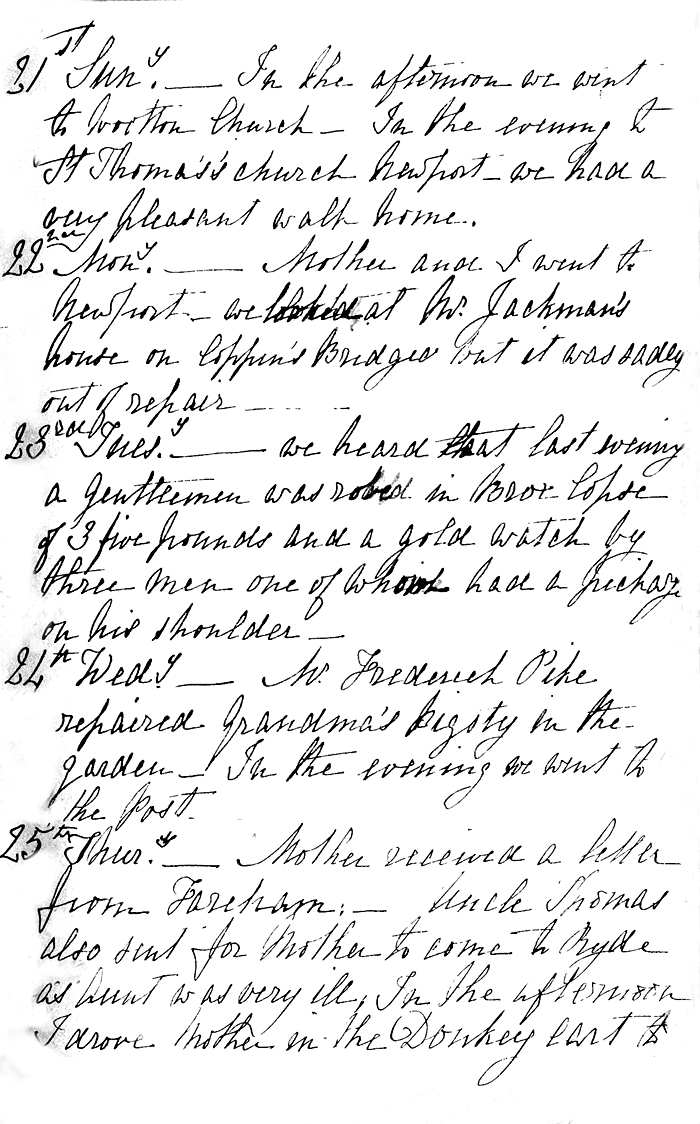 21st Suny. — In the afternoon we went
to Wootton Church — In the evening to
St Thomas's church Newport — we had a
very pleasant walk home.
22nd Mony. — Mother and I went to
Newport — we looked at Mr. Jackman's
house on Coppin's Bridge but it was sadly
out of repair —
23rd Tues.y — we heard that last evening
a gentlemen was robed in Brox Copse
of 3 five pounds and a gold watch by
three men one of whom had a
on his shoulder —
24th Wed.y — Mr. Frederick Pike
repaired Grandma's Pigsty in the
garden — In the evening we went to
the Post.
25th Thur.y — Mother received a letter
from Fareham: — Uncle Thomas
also sent for Mother to come to Ryde
as Aunt was very ill, In the afternoon
I drove Mother in the Donkey cart to